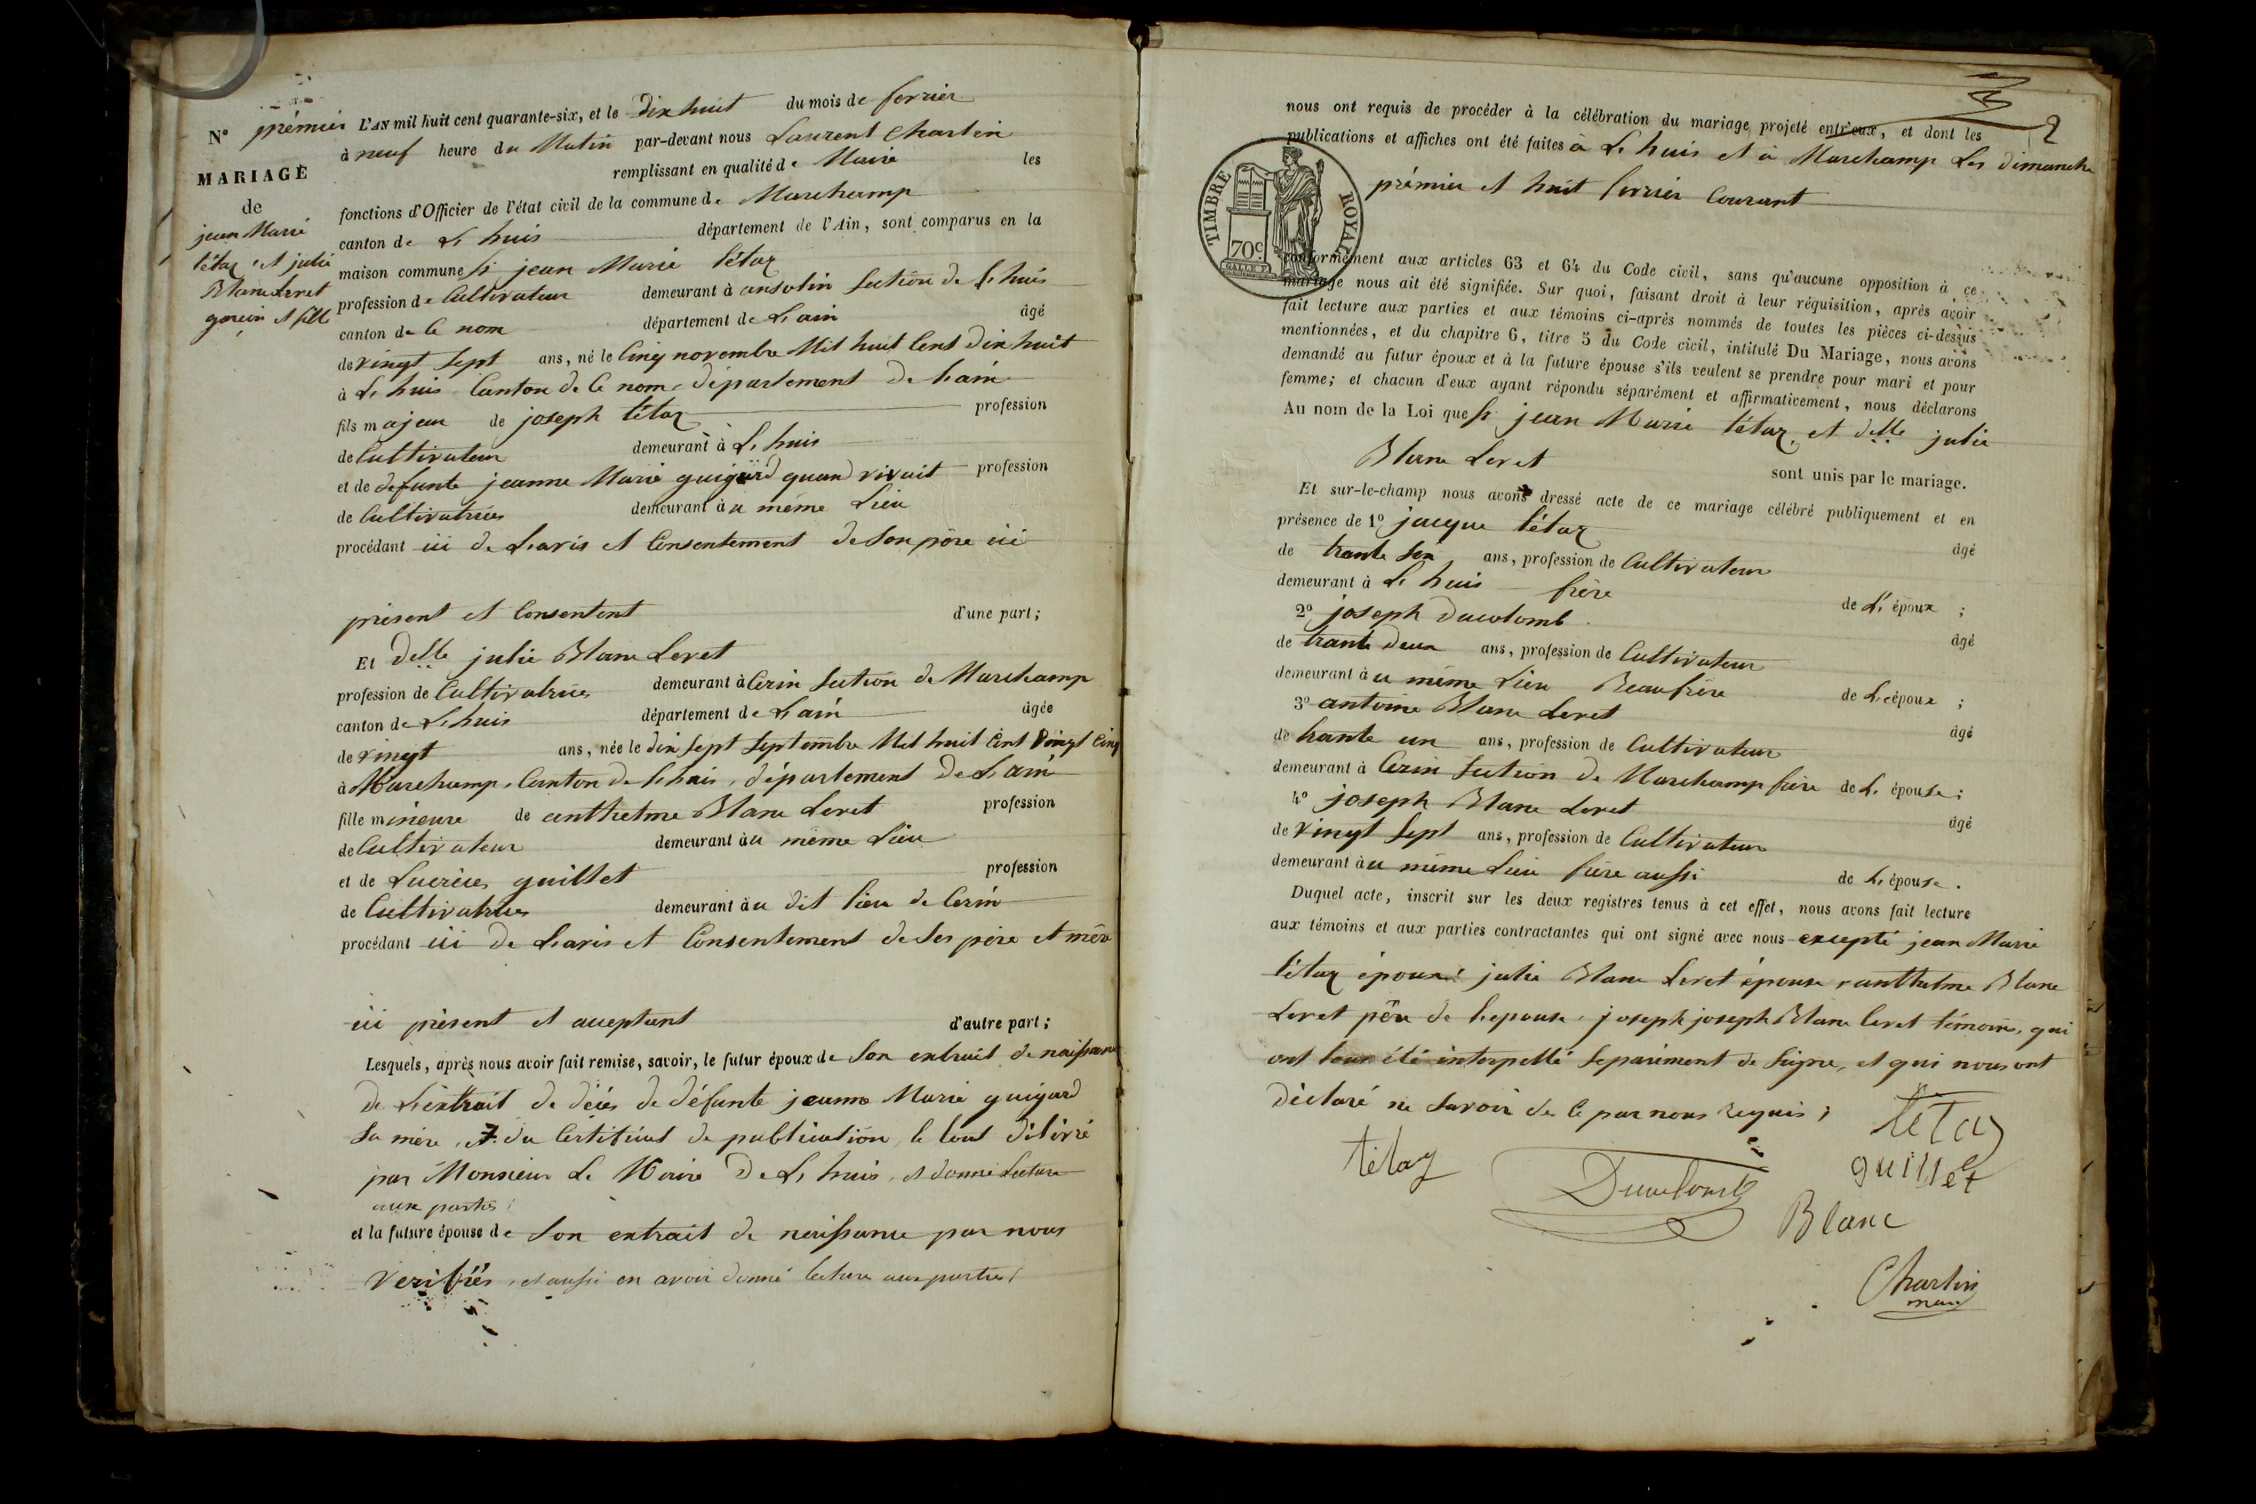 N° prémier
MARIAGE
de
jean Marie
tétaz et julie
Blanc Leret
garcon et fille
L'AN mil huit cent quarante-six, et le dix huit du mois de fevrier
à neuf heure du Matin par-devant nous Laurent Charlin
remplissant en qualité de Maire les
fonctions d'Officier de l'état civil de la commune de Marchamp
canton de Lhuis département de l'Ain, sont comparus en la
maison commune Sr jean Marie tétaz
profession de Cultivateur demeurant à ansolin Section de Lhuis
canton de Ce nom département de L'ain âgé
de vingt Sept ans, né le Cinq novembre Mil huit Cent Dix huit
à Lhuis Canton de Ce nom, département de L'ain
fils majeur de joseph tétaz profession
de Cultivateur demeurant à Lhuis
et de defunte jeanne Marie guigard quand vivait profession
de Cultivatrice demeurant au méme Lieu
procédant ici de Lavis et Consentement de Son père ici
présent et Consentent d'une part;
Et delle julie Blanc Leret
profession de Cultivatrice demeurant à Cerin Section de Marchamp
canton de Lhuis département de L'ain âgée
de vingt ans, née le dix Sept Septembre Mil huit Cent vingt Cinq
à Marchamp, Canton de Lhuis, département de L'ain
fille mineure de anthelme Blanc Leret profession
de Cultivateur demeurant au même Lieu
et de Lucrèce guillet profession
de Cultivatrice demeurant au dit lieu de Cerin
procédant ici de Lavis et Consentement de Ses père et mère
ici présent et acceptant d'autre part;
Lesquels, après nous avoir fait remise, savoir, le futur époux de Son extrait de naissance
de L'extrait de décés de défunte jeanne Marie guigard
Sa mère, et du Certificat de publication, le tout délivré
par Monsieur Le Maire de Lhuis, et donné Lecture
aux parties
et la future épouse de Son extrait de naissance par nous
verifiés, et aussi en avoir donné lecture aux parties
2
nous ont requis de procéder à la célébration du mariage projeté entr'eux, et dont les
publications et affiches ont été faites à Lhuis et à Marchamp Les dimanche
prémier et huit fevrier Courant
TIMBRE ROYAL
70c.
conformément aux articles 63 et 64 du Code civil, sans qu'aucune opposition à ce
mariage nous ait été signifiée. Sur quoi, faisant droit à leur réquisition, après avoir
fait lecture aux parties et aux témoins ci-après nommés de toutes les pièces ci-dessus
mentionnées, et du chapitre 6, titre 5 du Code civil, intitulé Du Mariage, nous avons
demandé au futur époux et à la future épouse s'ils veulent se prendre pour mari et pour
femme; et chacun d'eux ayant répondu séparément et affirmativement, nous déclarons
Au nom de la Loi que Sr jean Marie tétaz, et delle julie
Blanc Leret sont unis par le mariage.
Et sur-le-champ nous avons dressé acte de ce mariage célébré publiquement et en
présence de 1° jacque tétaz âgé
de trante Six ans, profession de Cultivateur
demeurant à Lhuis frère de L'époux ;
2° joseph Ducolomb âgé
de trante deux ans, profession de Cultivateur
demeurant au méme Lieu Beaufrère de L'époux ;
3° antoine Blanc Leret âgé
de trante un ans, profession de Cultivateur
demeurant à Cerin Section de Marchamp frère de L'épouse ;
4° joseph Blanc Leret âgé
de vingt Sept ans, profession de Cultivateur
demeurant au même Lieu frère aussi de L'épouse.
Duquel acte, inscrit sur les deux registres tenus à cet effet, nous avons fait lecture
aux témoins et aux parties contractantes qui ont signé avec nous excepté jean Marie
tétaz époux, julie Blanc Leret épouse, anthelme Blanc
Leret père de Lepouse, joseph joseph Blanc Leret témoin, qui
ont tous été interpellé Separément de Signe, et qui nous ont
Déclaré ne Savoir de Ce par nous requis,
tétaz
tétaz
Ducolomb
guillet
Blanc
Charlin
maire